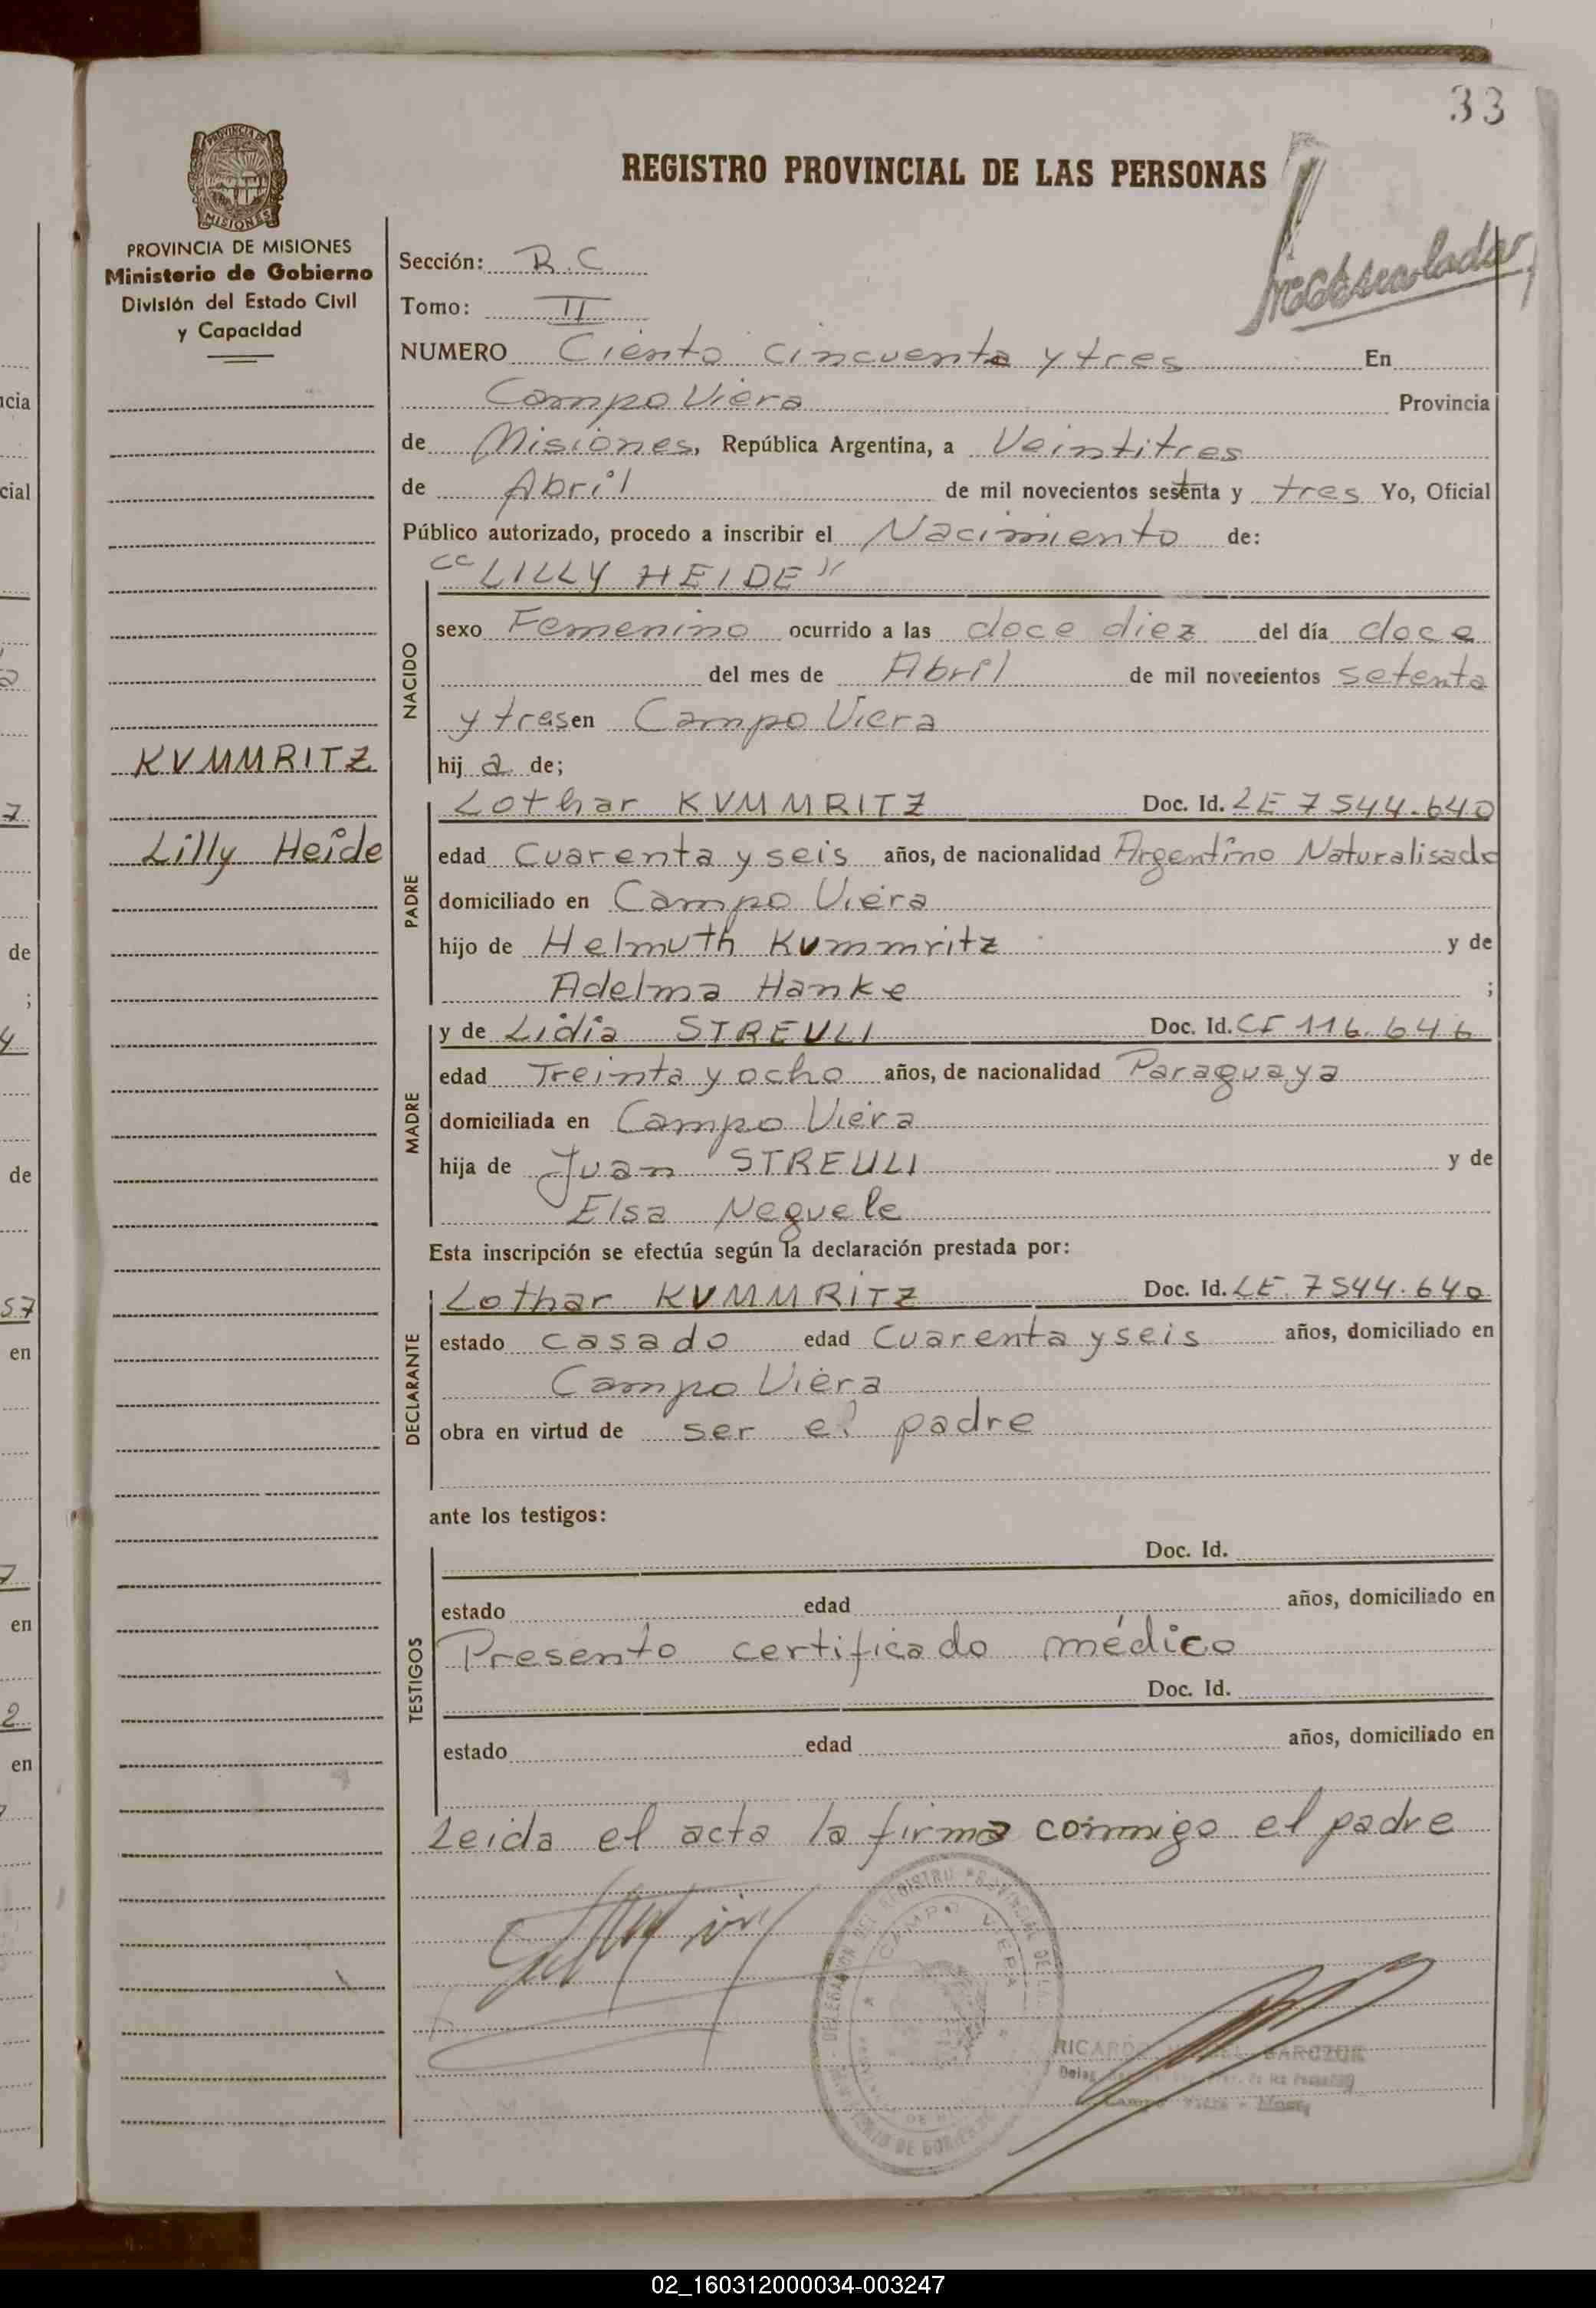 33
REGISTRO PROVINCIAL DE LAS PERSONAS
PROVINCIA DE
MISIONES
PROVINCIA DE MISIONES
Ministerio de Gobierno
División del Estado Civil
y Capacidad
KUMMRITZ
Lilly Heide
Sección: R.C
Tomo: II
NUMERO Ciento cincuenta y tres En
Campo Viera Provincia
de Misiones, República Argentina, a Veintitres
de Abril de mil novecientos sesenta y tres Yo, Oficial
Público autorizado, procedo a inscribir el Nacimiento de:
"LILLY HEIDE"
NACIDO
sexo Femenino ocurrido a las doce diez del día doce
del mes de Abril de mil novecientos setenta
y tres en Campo Viera
hij a de;
PADRE
Lothar KUMMRITZ Doc. Id. LE 7544.640
edad Cuarenta y seis años, de nacionalidad Argentino Naturalisado
domiciliado en Campo Viera
hijo de Helmuth Kummritz y de
Adelma Hanke ;
MADRE
y de Lidia STREULI Doc. Id. CF 116.646
edad Treinta y ocho años, de nacionalidad Paraguaya
domiciliada en Campo Viera
hija de Juan STREULI y de
Elsa Neguele
Esta inscripción se efectúa según la declaración prestada por:
DECLARANTE
Lothar KUMMRITZ Doc. Id. LE. 7544.640
estado casado edad Cuarenta y seis años, domiciliado en
Campo Viera
obra en virtud de ser el padre
ante los testigos:
TESTIGOS
Doc. Id.
estado edad años, domiciliado en
Presento certificado médico
Doc. Id.
estado edad años, domiciliado en
Leida el acta la firma conmigo el padre
DEL REGISTRO PROVINCIAL DE LA
CAMPO VIERA
DE GOBIERNO
RICARDO BARCZUK
Campo Viera
cia
cial
7
de
;
4
de
57
en
7
en
2
en
02_160312000034-003247